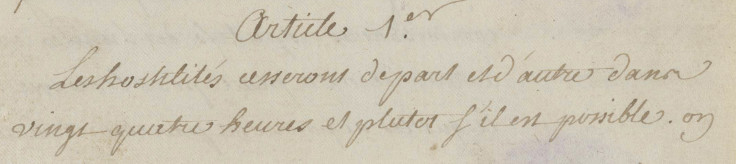 Article 1.er
Les hostilités cesseront de part et d'autre dans
vingt quatre heures et plutot s'il est possible. on